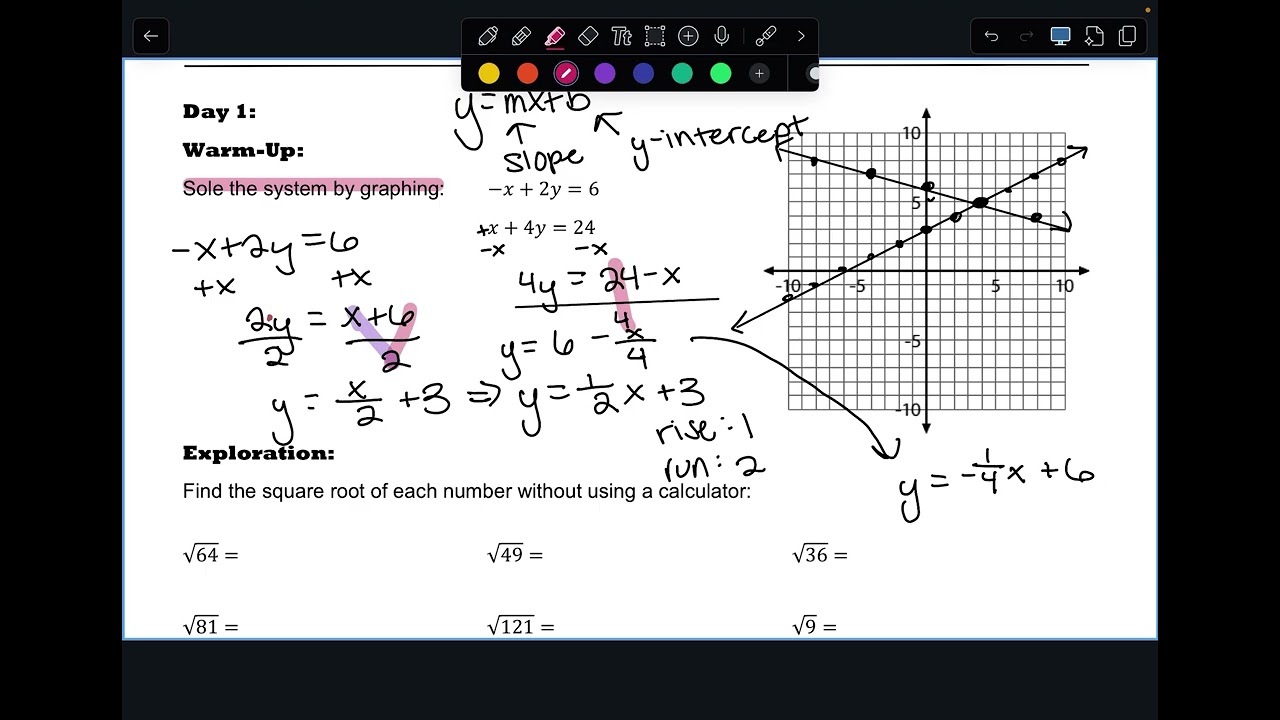 Tt
Day 1:
y = mx+b
↑ ↖
slope y-intercept
Warm-Up:
Sole the system by graphing:
−x + 2y = 6
+x + 4y = 24
-x -x
4y = 24-x
4
y = 6 - x/4
-x+2y=6
+x +x
2y = x+6
2 2
y = x/2 +3 ⇒ y = 1/2 x +3
rise: 1
run: 2
10
5
-10 -5 5 10
-5
-10
y = -1/4 x + 6
Exploration:
Find the square root of each number without using a calculator:
√64 = √49 = √36 =
√81 = √121 = √9 =